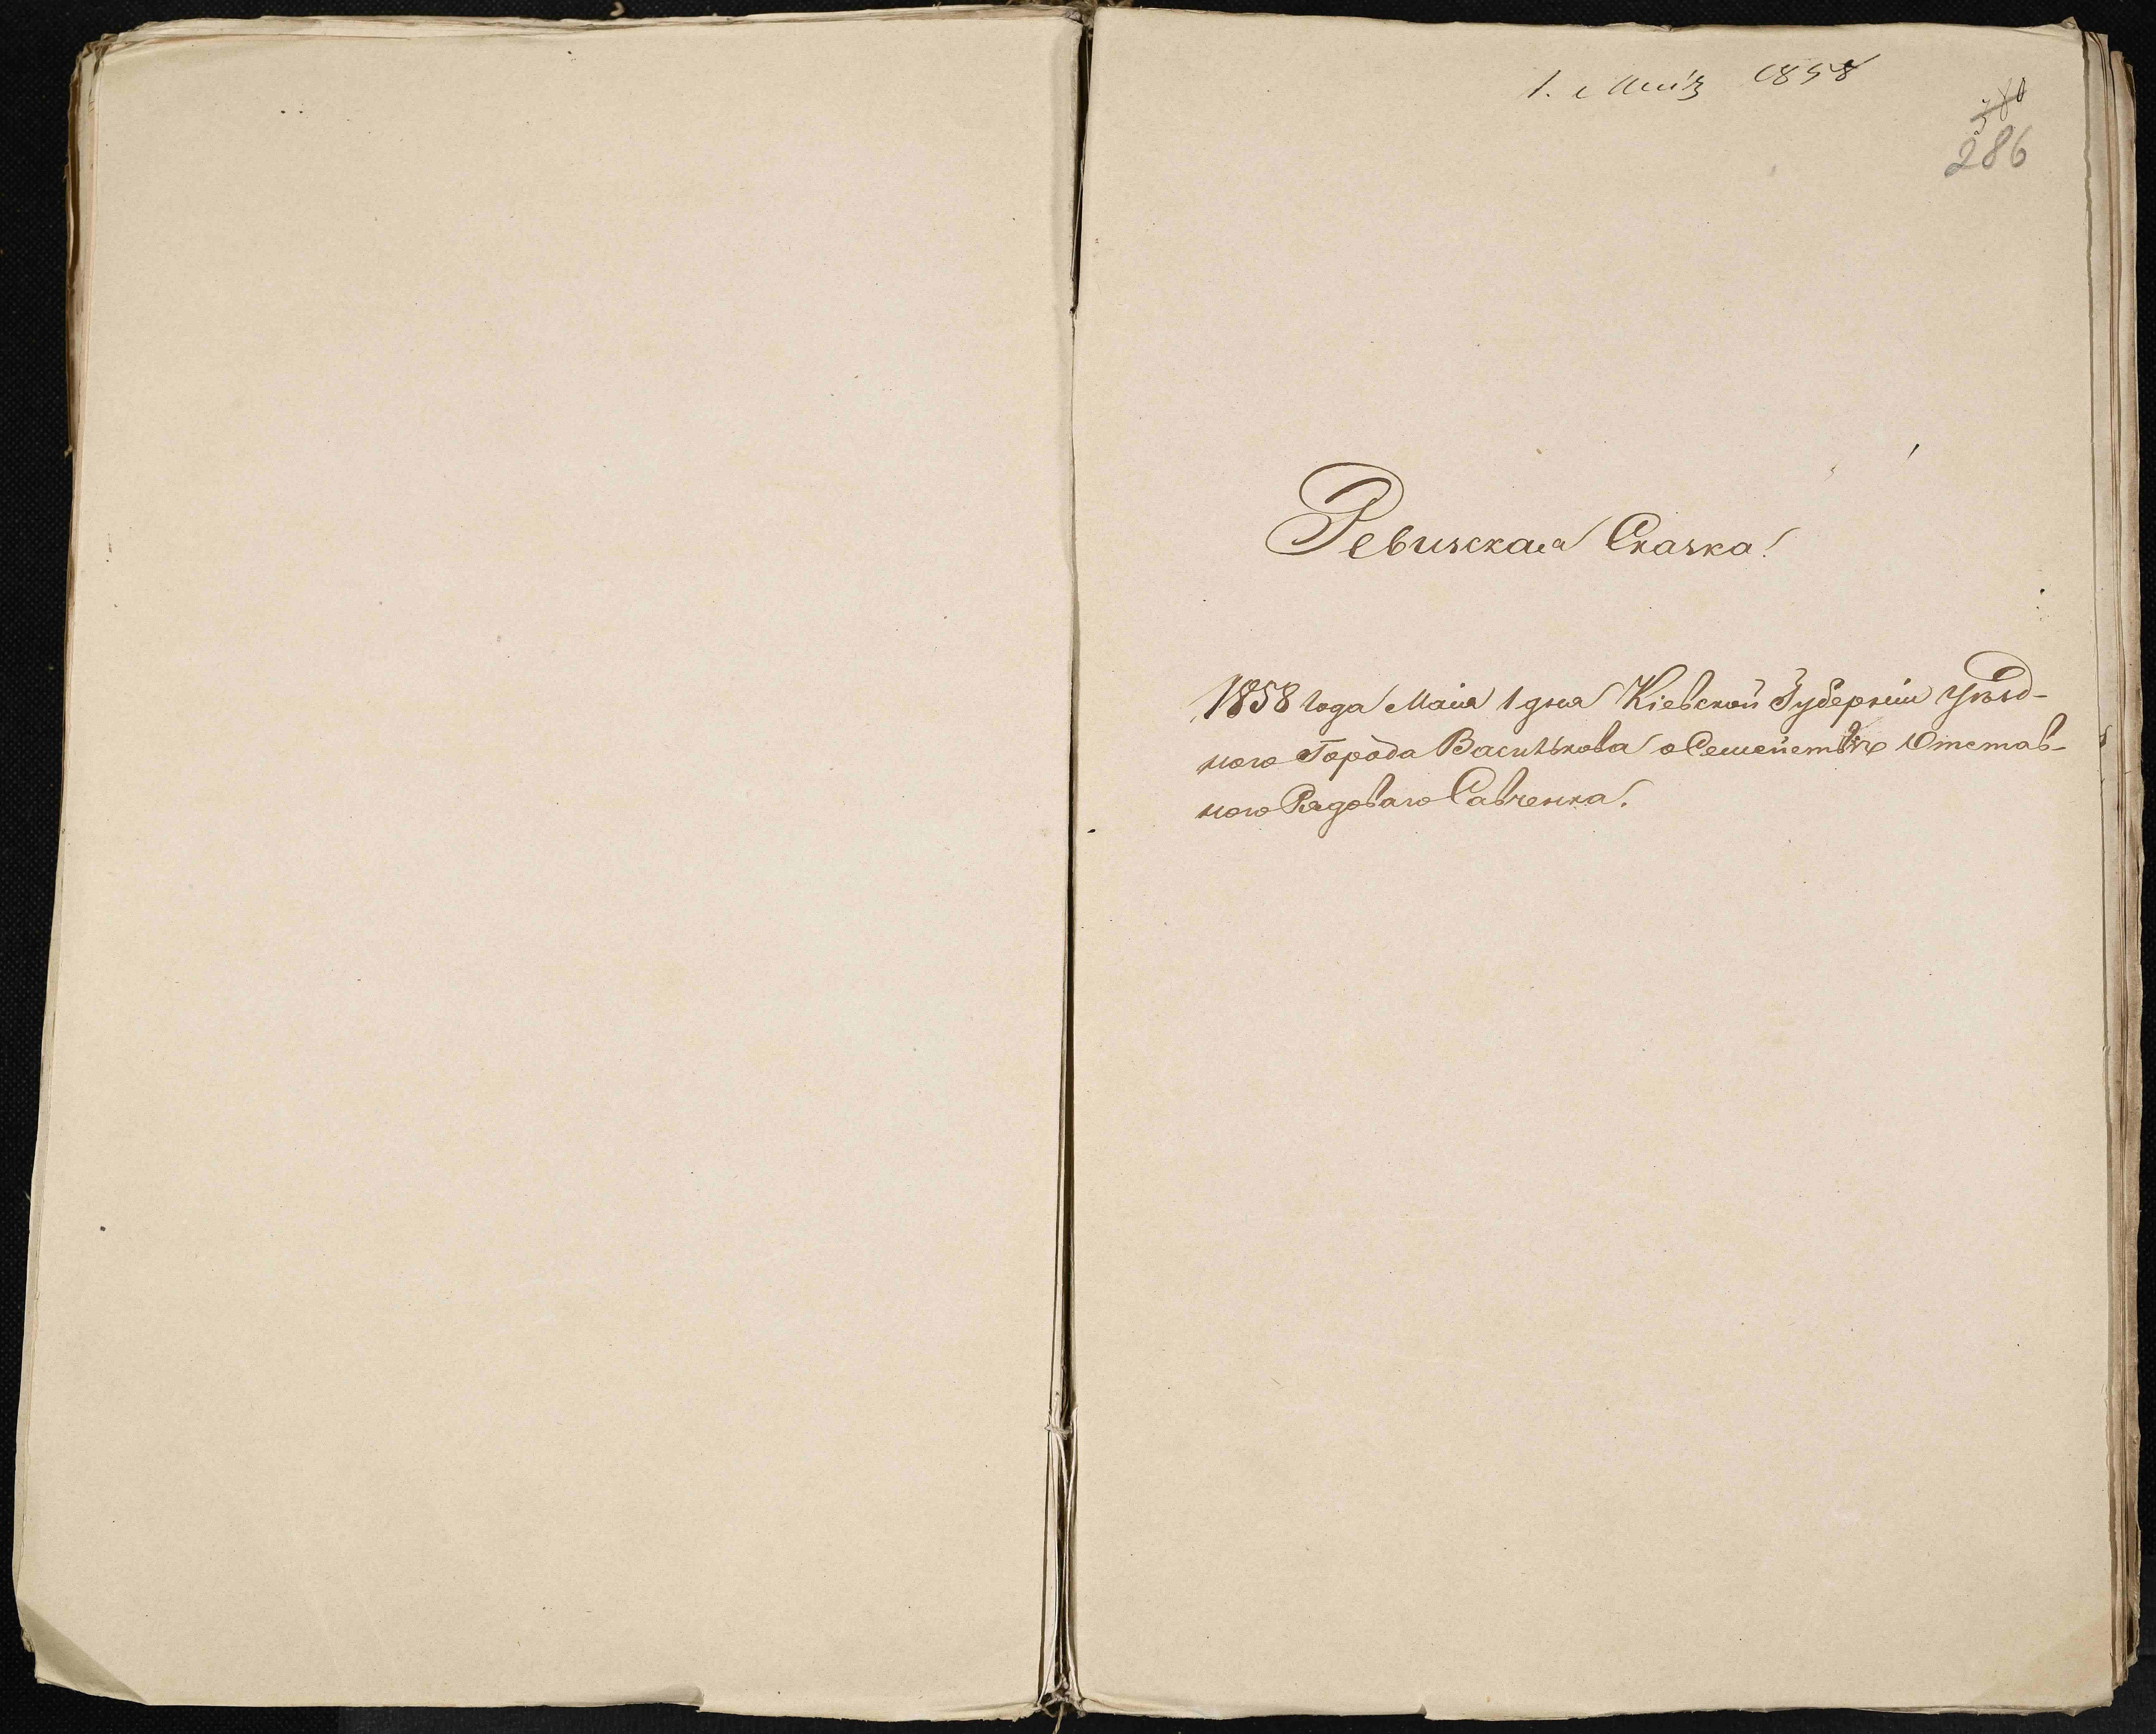 1. Маія 1858
380
286
Ревизская Сказка.
1858 года Маія 1 дня Кіевской Губерніи Уѣзд-
ного Города Василькова о Семействѣ Отстав-
ного Рядоваго Савченка.